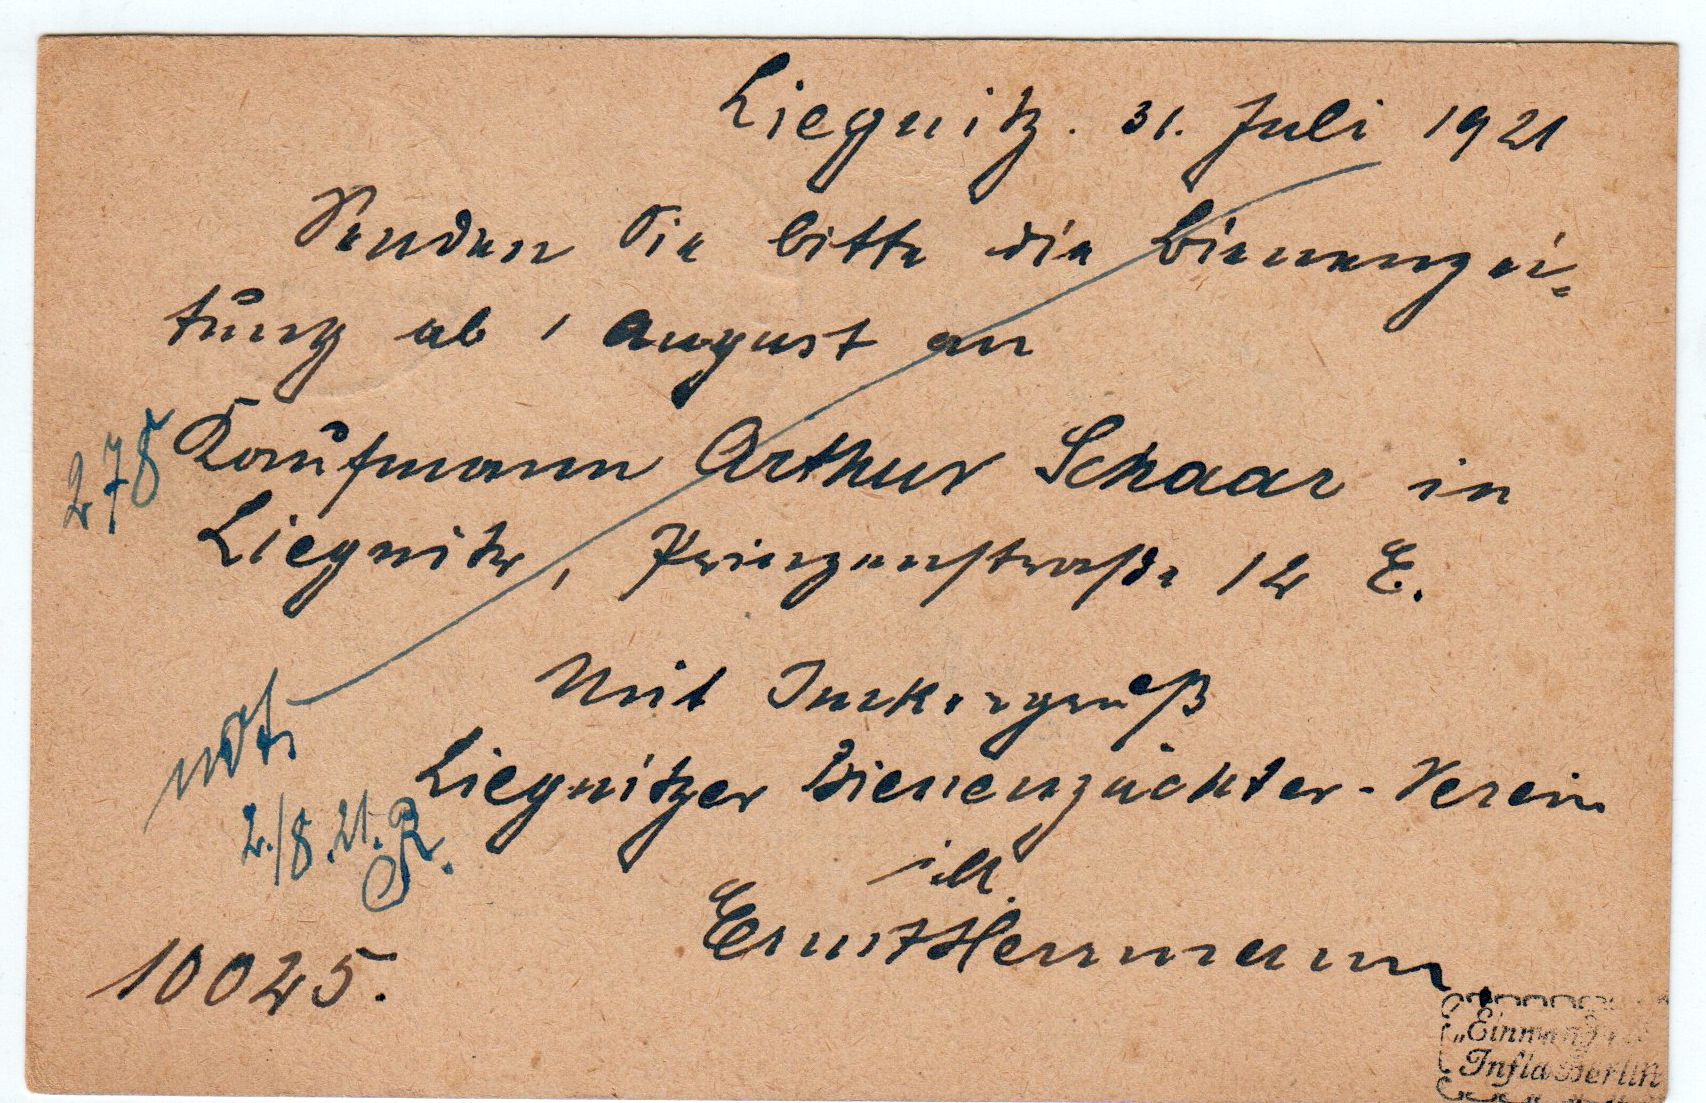 Liegnitz. 31. Juli 1921
Senden Sie bitte die Bienenzei-
tung ab 1 August an
278
Kaufmann Arthur Schaar in
Liegnitz, Prinzenstraße 12 E.
Mit Imkergruß
Liegnitzer Bienenzüchter-Verein
not.
2./8.21. R.
Ernst Herrmann
10025.
„Einwandfrei
Infla Berlin